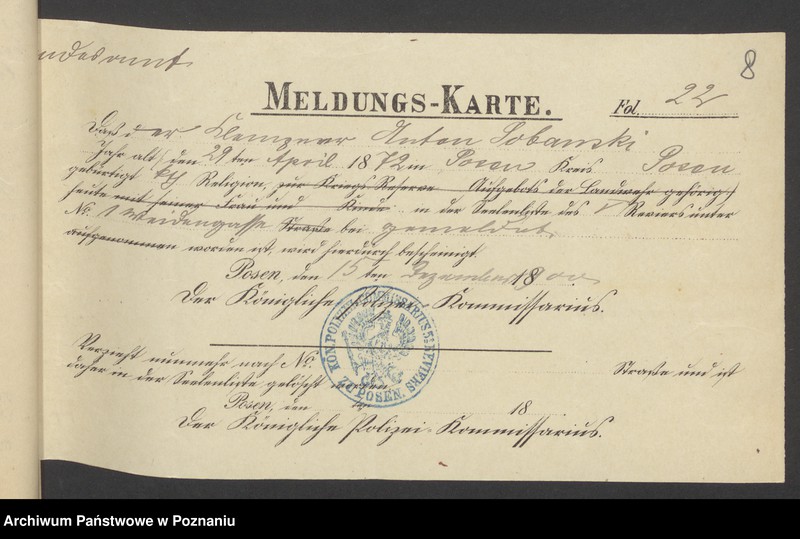 8
MELDUNGS-KARTE.
Fol. 22
Daß der Klempner Anton Sobanski
Jahr alt, den 29 ten April 1872 in Posen Kreis Posen
gebürtigt kth Religion, zur Kriegs-Reserve Aufgebots der Landwehr gehörig,
heute mit seiner Frau und Kinder in der Seelenliste des V Reviers unter
No. 1 Weidengasse Straße bei gemeldet
aufgenommen worden ist, wird hierdurch bescheinigt.
Posen, den 15 ten Dezember 1900
Der Königliche Polizei-Kommissarius.
KÖN. POLIZEI-COMMISSARIUS 5s REVIERS ZU POSEN.
Verzieht nunmehr nach No. Straße und ist
daher in der Seelenliste gelöscht worden.
Posen, den ten 18
Der Königliche Polizei-Kommissarius.
Archiwum Państwowe w Poznaniu